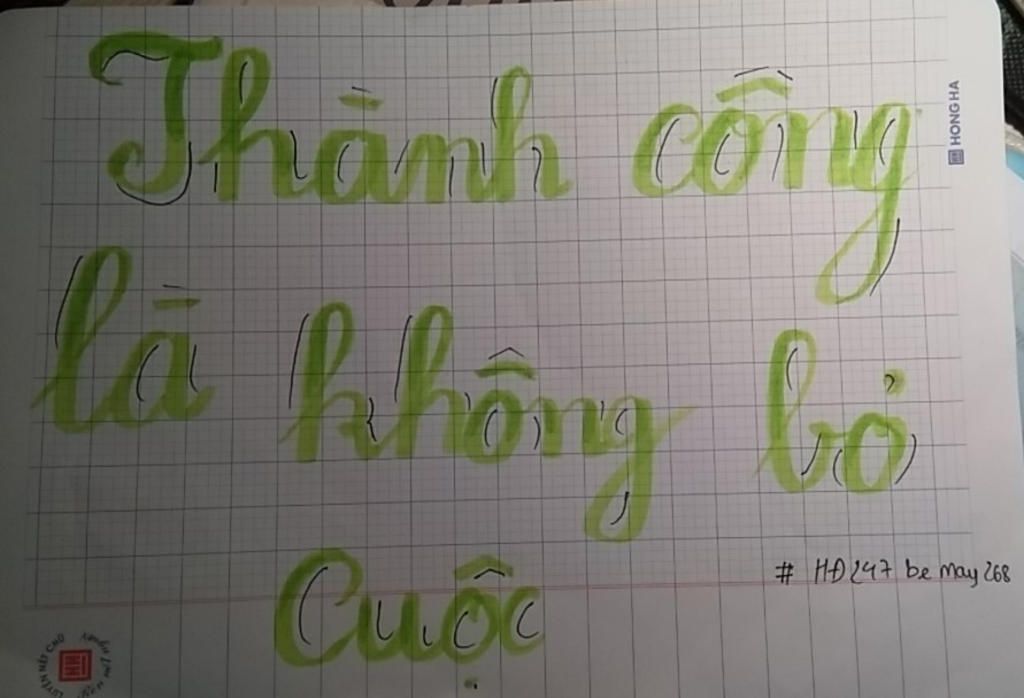 Thành công
HONG HA
là không bỏ
# HĐ247 be may 268
Cuộc